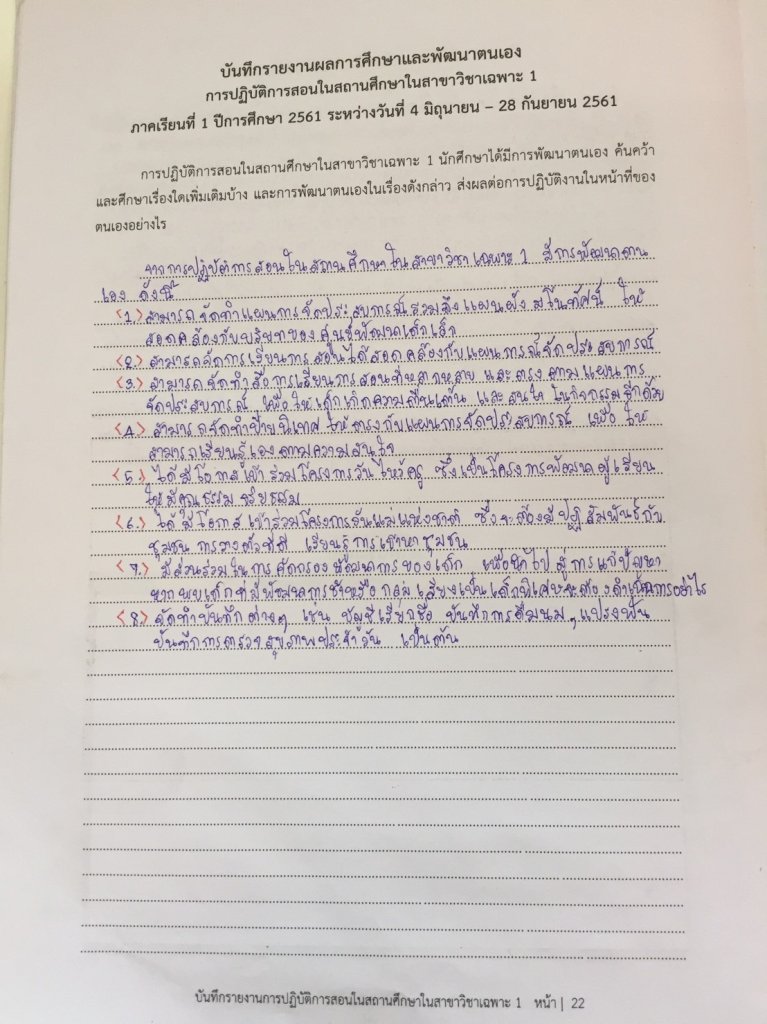 บันทึกรายงานผลการศึกษาและพัฒนาตนเอง
การปฏิบัติการสอนในสถานศึกษาในสาขาวิชาเฉพาะ 1
ภาคเรียนที่ 1 ปีการศึกษา 2561 ระหว่างวันที่ 4 มิถุนายน – 28 กันยายน 2561
การปฏิบัติการสอนในสถานศึกษาในสาขาวิชาเฉพาะ 1 นักศึกษาได้มีการพัฒนาตนเอง ค้นคว้า
และศึกษาเรื่องใดเพิ่มเติมบ้าง และการพัฒนาตนเองในเรื่องดังกล่าว ส่งผลต่อการปฏิบัติงานในหน้าที่ของ
ตนเองอย่างไร
จากการปฏิบัติการสอนในสถานศึกษาในสาขาวิชาเฉพาะ 1 มีการพัฒนาตน
เอง ดังนี้
<1.> สามารถจัดทำแผนการจัดประสบการณ์รวมถึงแผนผังมโนทัศน์ ให้
สอดคล้องกับบริบทของศูนย์พัฒนาเด็กเล็ก
<2.> สามารถจัดการเรียนการสอนได้สอดคล้องกับแผนการณ์จัดประสบการณ์
<3.> สามารถจัดทำสื่อการเรียนการสอนที่หลากหลาย และตรงตามแผนการ
จัดประสบการณ์ เพื่อให้เด็กเกิดความตื่นเต้น และสนใจในกิจกรรมอีกด้วย
<4.> สามารถจัดทำป้ายนิเทศให้ตรงกับแผนการจัดประสบการณ์ เพื่อให้
สามารถเรียนรู้เองตามความสนใจ
<5.> ได้มีโอกาสเข้าร่วมโครงการวันไหว้ครู ซึ่งเป็นโครงการพัฒนาผู้เรียน
ให้มีคุณธรรม จริยธรรม
<6.> ได้มีโอกาสเข้าร่วมโครงการวันแม่แห่งชาติ ซึ่งจะต้องมีปฏิสัมพันธ์กับ
ชุมชน การวางตัวที่ดี เรียนรู้การเข้าหาชุมชน
<7.> มีส่วนร่วมในการคัดกรองพัฒนาการของเด็ก เพื่อนำไปสู่การแก้ปัญหา
หากพบเด็กที่มีพัฒนาการช้าหรือกลุ่มเสี่ยงเป็นเด็กพิเศษจะต้องดำเนินการอย่าไร
<8.> จัดทำบันทึกต่างๆ เช่น บัญชีเรียกชื่อ บันทึกการดื่มนม, แปรงฟัน
บันทึกการตรวจสุขภาพประจำวัน เป็นต้น
บันทึกรายงานการปฏิบัติการสอนในสถานศึกษาในสาขาวิชาเฉพาะ 1 หน้า | 22